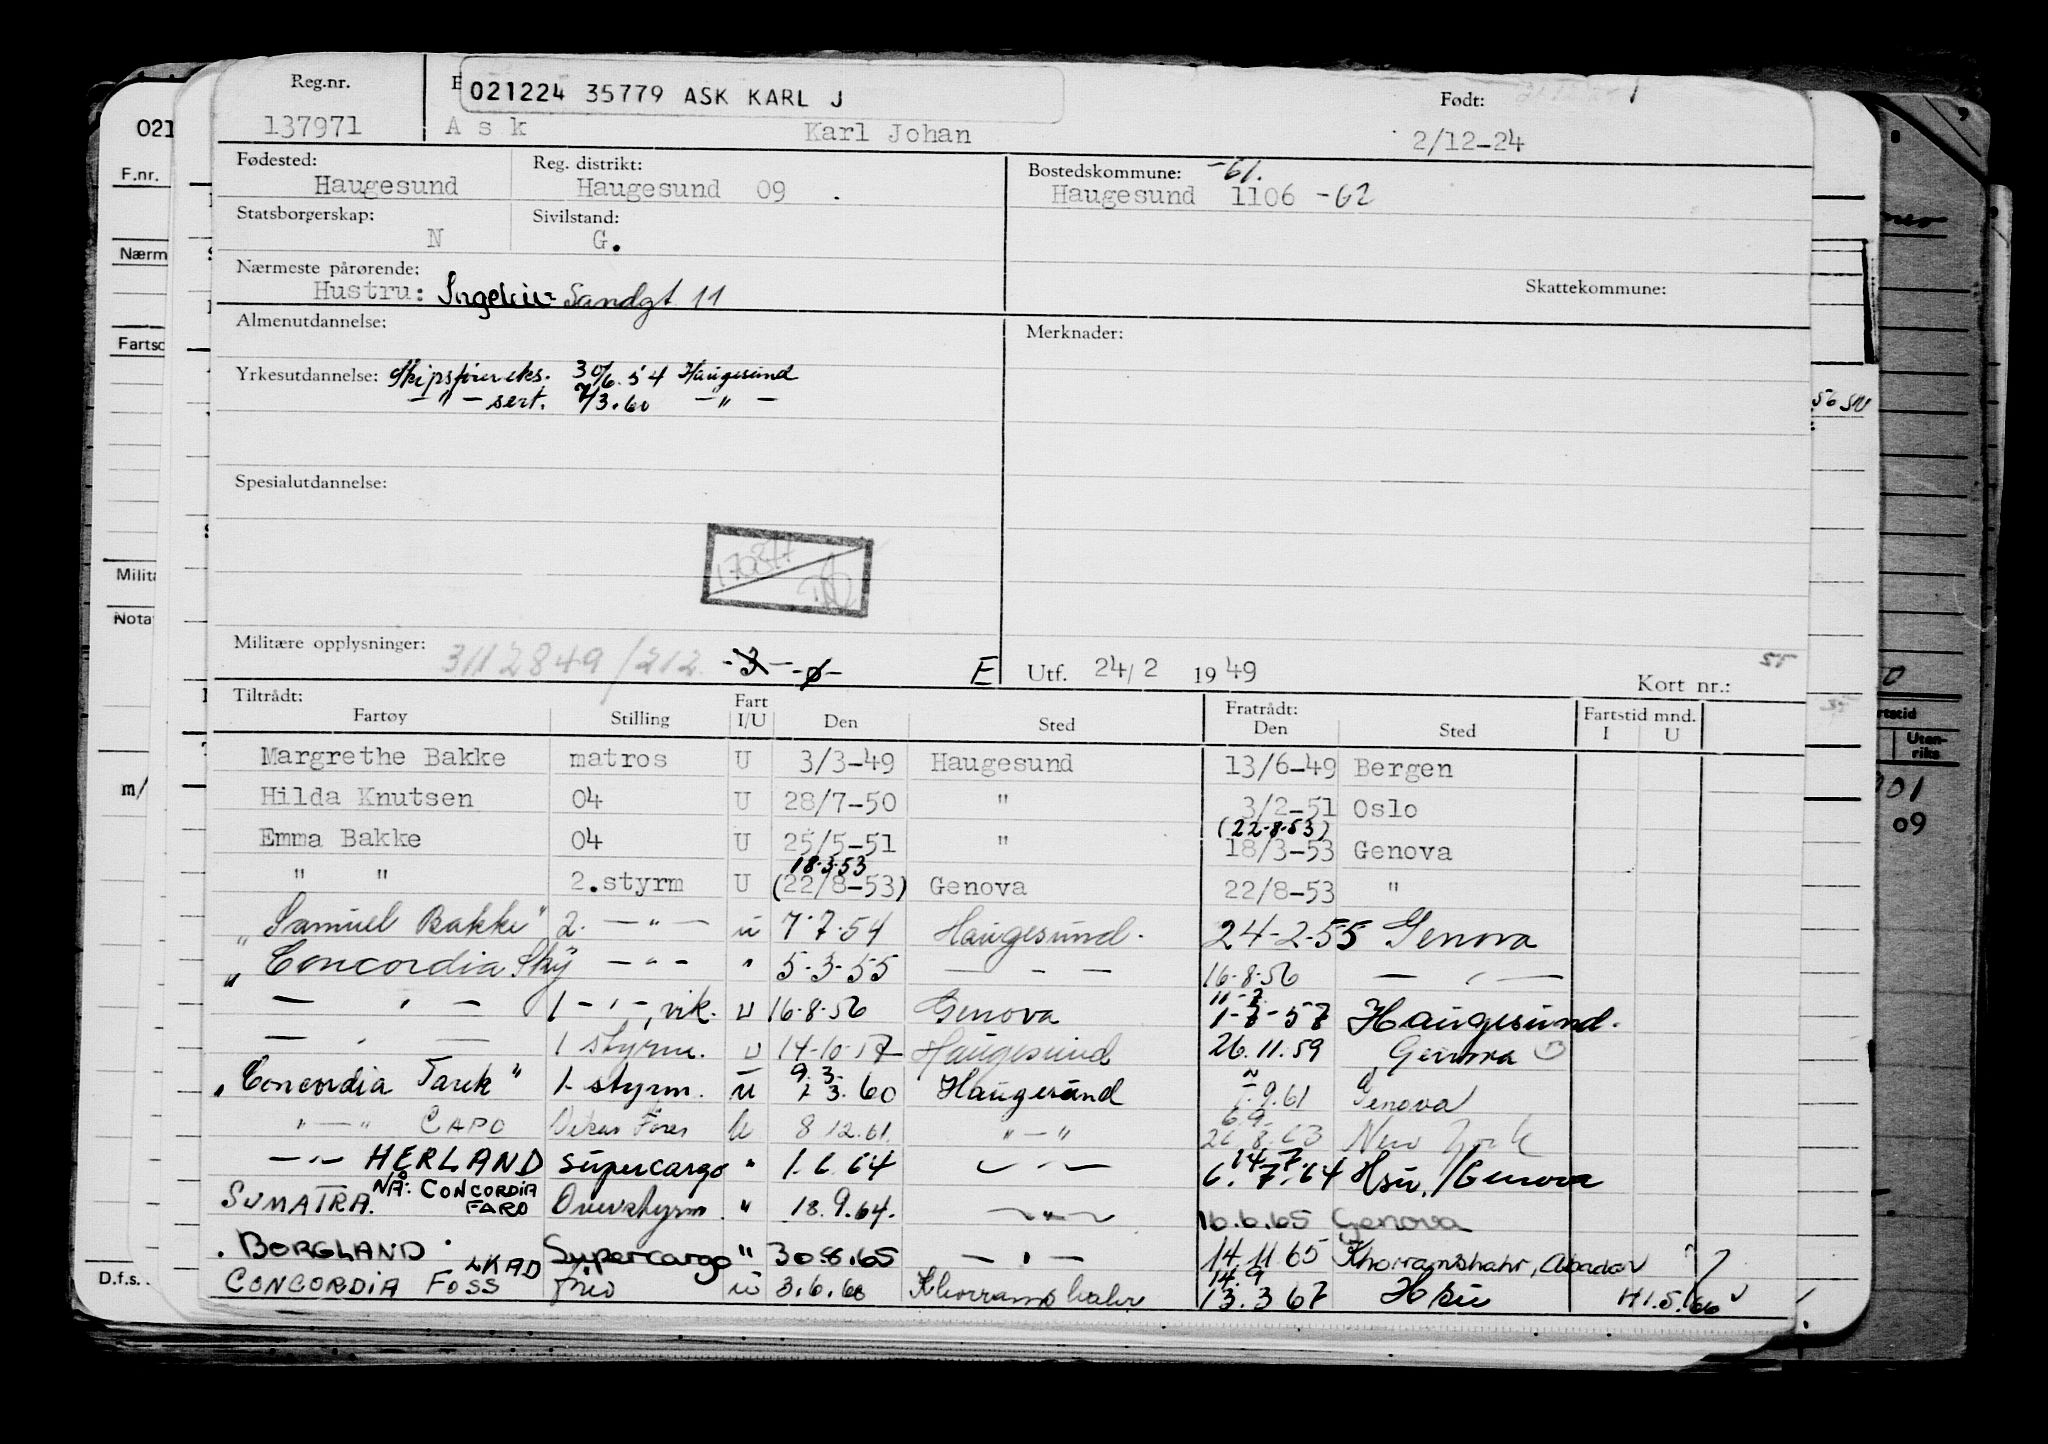 Reg.nr.
021224 35779 ASK KARL J
Født:
137971 Ask Karl Johan 2/12-24
Fødested: Reg. distrikt: Bostedskommune: -61.
Haugesund Haugesund 09 . Haugesund 1106 -62
Statsborgerskap: Sivilstand:
N G.
Nærmeste pårørende:
Hustru: Sandgt 11
Skattekommune:
Almenutdannelse: Merknader:
Yrkesutdannelse: Skipsførereks. 30/6.54 Haugesund
-"- sert. 7/3.60 -"-
Spesialutdannelse:
Militære opplysninger: 3112849/212 -3- -ø- E Utf. 24/2 1949 Kort nr.:
Tiltrådt: Fart Fratrådt: Fartstid mnd.
Fartøy Stilling I/U Den Sted Den Sted I U
Margrethe Bakke matros U 3/3-49 Haugesund 13/6-49 Bergen
Hilda Knutsen 04 U 28/7-50 " 3/2-51 Oslo
(22-8-53)
Emma Bakke 04 U 25/5-51 " 18/3-53 Genova
18.3.53
" " 2.styrm U (22/8-53) Genova 22/8-53 "
"Samuel Bakke" 2. -"- u 7.7.54 Haugesund. 24-2-55 Genova
"Concordia Sky -"- " 5-3-55 - - - 16-8-56 - " -
11-7-
- " - 1 -"-, vik. u 16-8-56 Genova 1-8-57 Haugesund.
- " - 1 styrm. u 14-10-57 Haugesund 26.11.59 Genova
9.3.
"Concordia Tarek" 1-styrm. u 3.60 Haugesund 9.61 Genova
6.9.
"-" CAPO u 8 12.61 "-" 8.63 New York
14.7.
-"- HERLAND supercargo " 1.6.64 -"- 6.7.64 Hsu./Genova
NÅ: CONCORDIA
SUMATRA. FARO Overstyrm. " 18.9.64. -"- 16.6.65 Genova
"BORGLAND" Supercargo " 30.8.65 -"- 14.11.65 Khorramshahr, Abadan
LKAD
14.9
CONCORDIA FOSS u 3.6.66 Khorramshahr 13.3 67 Hsu 1.5.66
021
F.nr.
Nærm
Fartsc
Milita
Nota
m/
D.f.s.
56 SU
rtstid
Uten-
riks
01
09